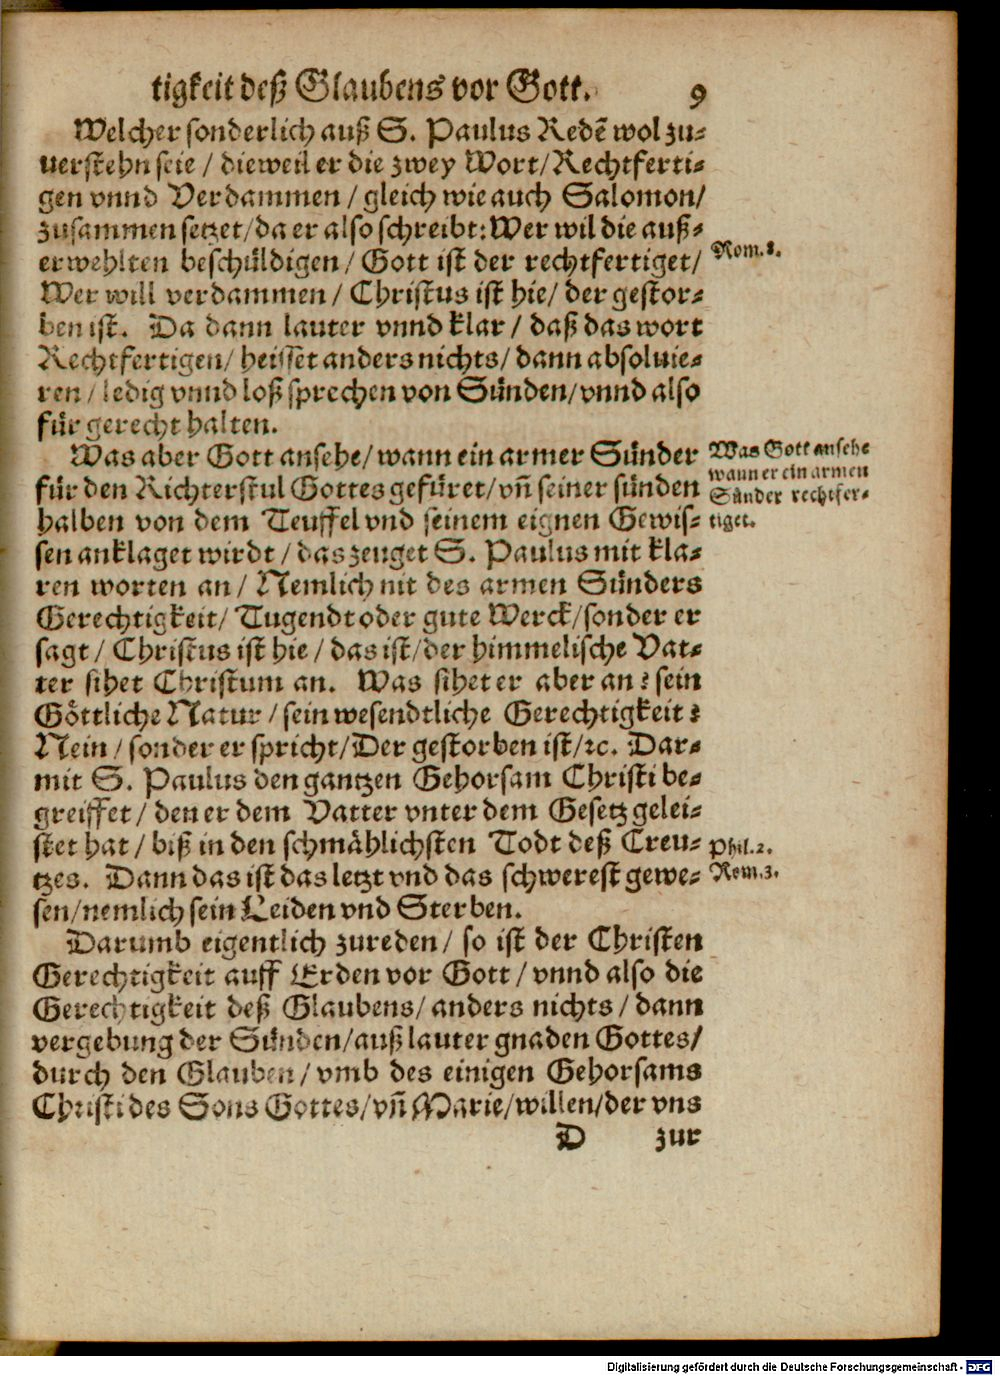 tigkeit deß Glaubens vor Gott. 9
Welcher sonderlich auß S. Paulus Redẽ wol zu-
uerstehn seie / dieweil er die zwey Wort/Rechtferti-
gen vnnd Verdammen / gleich wie auch Salomon/
zusammen setzet/da er also schreibt: Wer wil die auß-
erwehlten beschüldigen/ Gott ist der rechtfertiget/
Rom. 8.
Wer will verdammen / Christus ist hie/ der gestor-
ben ist. Da dann lauter vnnd klar / daß das wort
Rechtfertigen/ heisset anders nichts/ dann absoluie-
ren / ledig vnnd loß sprechen von Sünden/vnnd also
für gerecht halten.
Was aber Gott ansehe/wann ein armer Sünder
für den Richterstul Gottes gefüret/vñ seiner sünden
halben von dem Teuffel vnd seinem eignen Gewis-
Was Gott ansehe
wann er ein armen
Sünder rechtfer-
tiget.
sen anklaget wirdt / das zeuget S. Paulus mit kla-
ren worten an/ Nemlich nit des armen Sünders
Gerechtigkeit/ Tugendt oder gute Werck/sonder er
sagt / Christus ist hie / das ist/der himmelische Vat-
ter sihet Christum an. Was sihet er aber an? sein
Göttliche Natur / sein wesendtliche Gerechtigkeit?
Nein / sonder er spricht/Der gestorben ist/ꝛc. Dar-
mit S. Paulus den gantzen Gehorsam Christi be-
greiffet / den er dem Vatter vnter dem Gesetz gelei-
stet hat / biß in den schmählichsten Todt deß Creu-
Phil. 2.
tzes. Dann das ist das letzt vnd das schwerest gewe-
Rom. 3.
sen/nemlich sein Leiden vnd Sterben.
Darumb eigentlich zureden/ so ist der Christen
Gerechtigkeit auff Erden vor Gott / vnnd also die
Gerechtigkeit deß Glaubens/ anders nichts / dann
vergebung der Sünden/auß lauter gnaden Gottes/
durch den Glauben / vmb des einigen Gehorsams
Christi des Sons Gottes/vñ Marie/willen/der vns
D zur
Digitalisierung gefördert durch die Deutsche Forschungsgemeinschaft - DFG